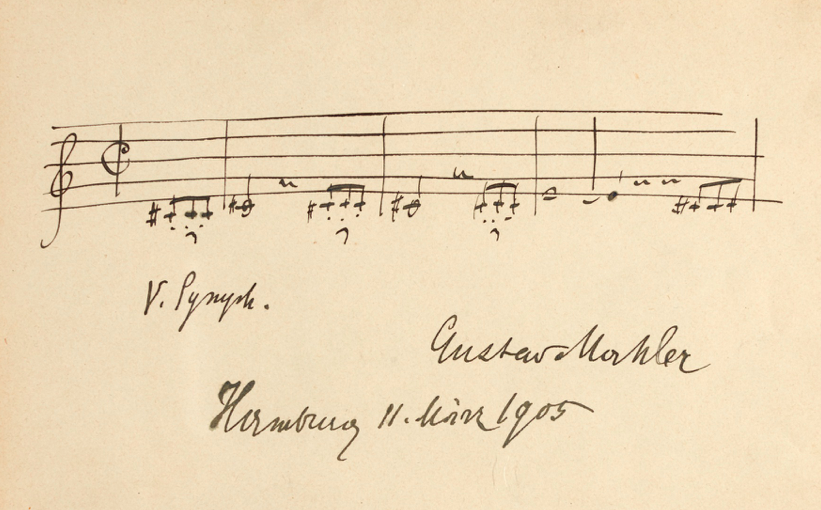 V. Symph.
Gustav Mahler
Hamburg 11. März 1905